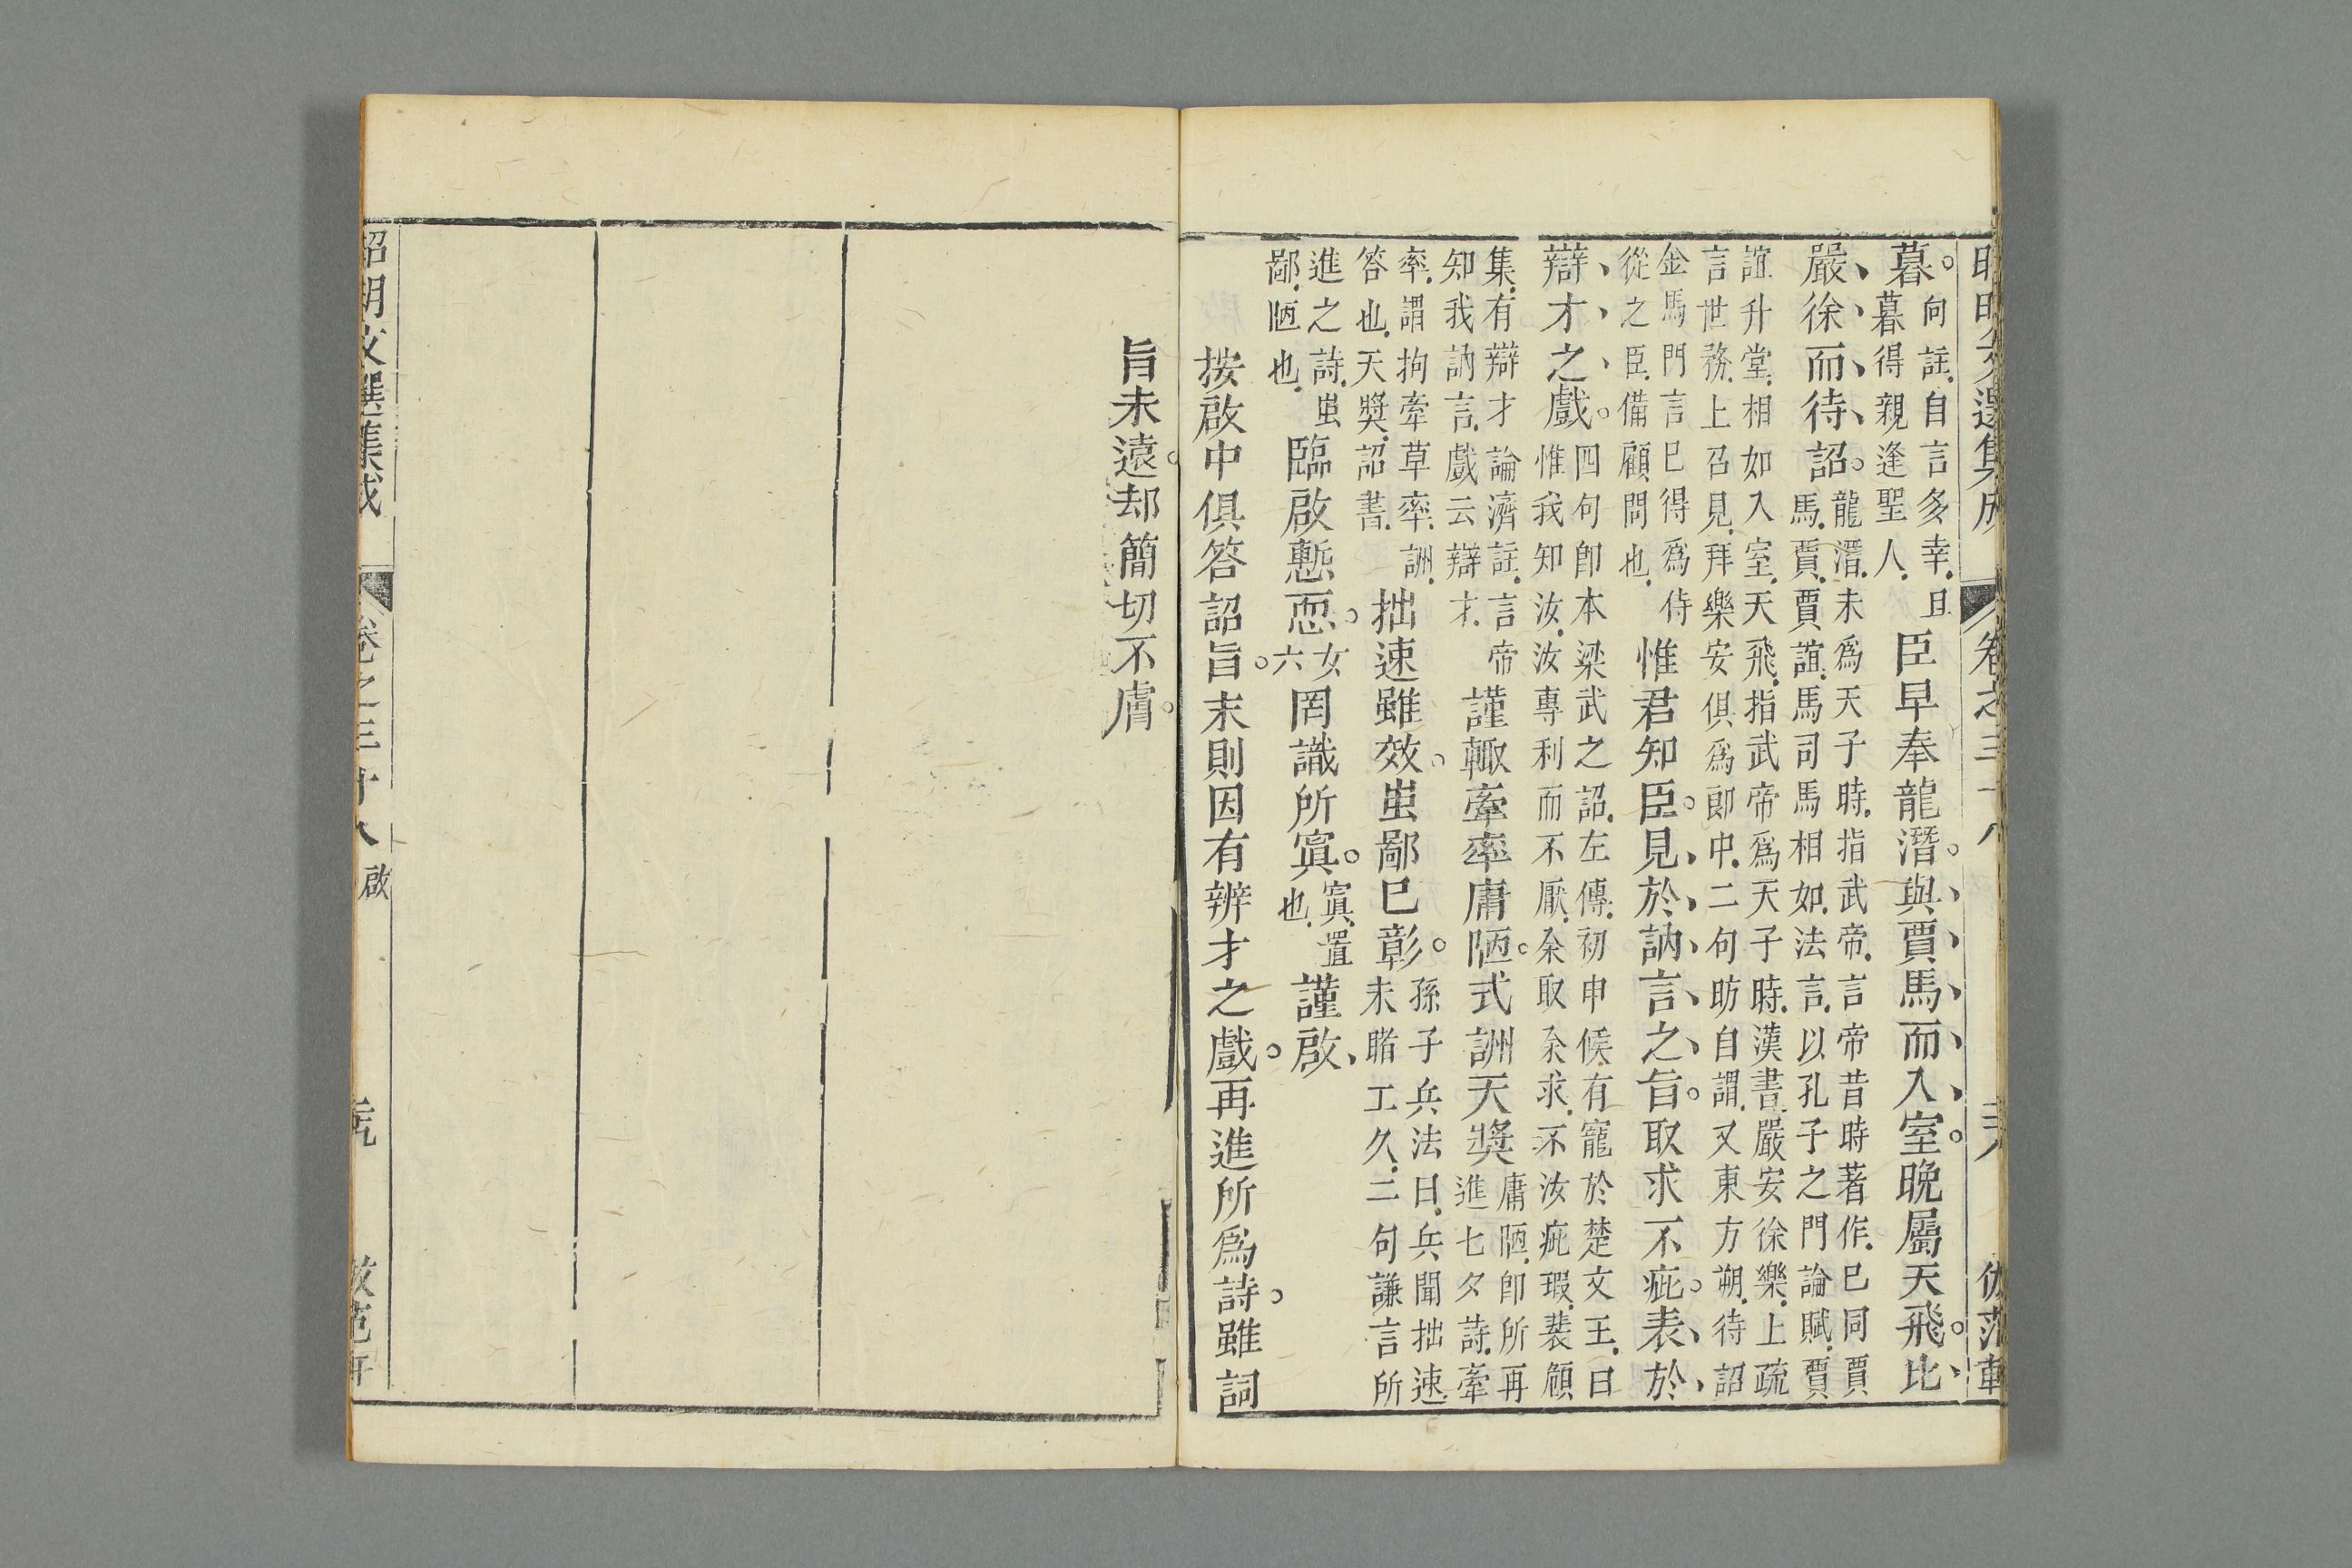 昭明文選集成　卷之三十八
暮。向註.自言多幸.且
暮得親逢聖人.
臣早奉龍潛。與賈馬而入室。晚屬天飛。比
嚴徐而待詔。龍潛.未爲天子時.指武帝.言帝昔時著作.已同賈
馬.賈.賈誼.馬司馬相如.法言.以孔子之門論賦.賈
誼升堂.相如入室.天飛.指武帝爲天子時.漢書.嚴安徐樂.上疏
言世務.上召見.拜樂安俱爲郎中.二句昉自謂.又東方朔.待詔
金馬門言已得爲侍
從之臣.備顧問也.
惟君知臣。見於訥言之旨。取求不疵。表於
辯才之戲。四句卽本梁武之詔.左傳.初申侯.有寵於楚文王.曰
惟我知汝.汝專利而不厭.余取余求.不汝疵瑕.裴顧
集.有辯才論濟註.言帝
知我訥言.戲云辯才.
謹輒牽率庸陋。式詶天獎庸陋.卽所再
進七夕詩.牽
率.謂拘牽草率.詶.
答也.天獎.詔書.
拙速雖效。蚩鄙已彰。孫子兵法曰.兵聞拙速.
未睹工久.二句謙言所
進之詩.蚩
鄙.陋也.
臨啟慙恧。女
六
罔識所寘。寘.置
也.
謹啟、
按啟中俱答詔旨。末則因有辨才之戲。再進所爲詩。雖詞
旨未遠。却簡切不膚。
昭明文選集成　卷之三十八　啟